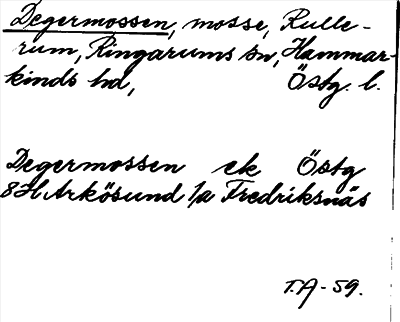 Degermossen, mosse, Rulle-
rum, Ringarums sn, Hammar-
kinds hd, Östg. l.
Degermossen ek Östg
8H Arkösund 1/a Fredriksnäs
T.A-59.